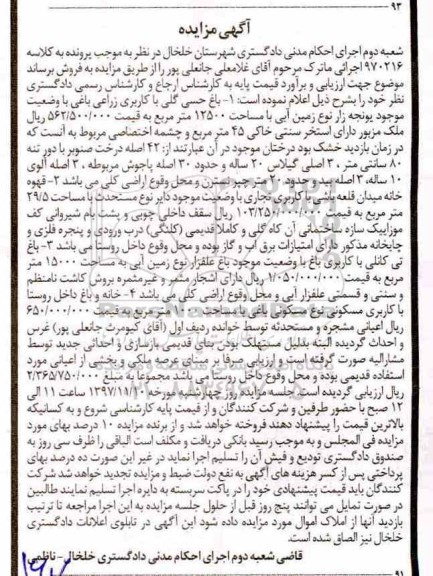 ۹۳
آگهی مزایده
شعبه دوم اجرای احکام مدنی دادگستری شهرستان خلخال در نظر به موجب پرونده به کلاسه
۹۷۰۲۱۶ اجرائی ماترک مرحوم آقای غلامعلی جانعلی پور را از طریق مزایده به فروش برساند
موضوع جهت ارزیابی و برآورد قیمت پایه به کارشناس ارجاع و کارشناس رسمی دادگستری
نظر خود را بشرح ذیل اعلام نموده است: ۱- باغ حسی گلی با کاربری زراعی باغی با وضعیت
موجود یونجه زار نوع زمین آبی با مساحت ۱۲۵۰۰ متر مربع به قیمت ۵۶۲/۵۰۰/۰۰۰ ریال
ملک مزبور دارای استخر سنتی خاکی ۴۵ متر مربع و چشمه اختصاصی مربوط به آنست که
در زمان بازدید خشک بود درختان موجود در آن عبارتند از: ۴۲ اصله درخت صنوبر با دور تنه
۸۰ سانتی متر ۳۰ اصلی گیلاس ۲۰ ساله و حدود ۳۰ اصله پاجوش مربوطه ۳۰ اصله آلوی
۱۰ ساله، ۳ اصله بید حدود ۲۰ متر چپر مخزن و محل وقوع اراضی کلی می باشد ۲- قهوه
خانه میدان قلعه باشی با کاربری تجاری با وضعیت موجود دایر نوع مستحدث با مساحت ۲۹/۵
متر مربع به قیمت ۱۰۳/۲۵۰/۰۰۰ ریال سقف داخلی چوبی و پشت بام شیروانی کف
موزاییک سازه ساختمانی آن کاه گلی و کاملا قدیمی (کلنگی) درب ورودی و پنجره فلزی و
چایخانه مذکور دارای امتیازات برق آب و گاز بوده و محل وقوع داخل روستایی می باشد ۳- باغ
تی کانلی با کاربری باغ با وضعیت موجود باغ علفزار نوع زمین آبی به مساحت ۱۵۰۰۰ متر
مربع به قیمت ۱/۰۵۰/۰۰۰/۰۰۰ ریال دارای اشجار مثمر و غیرمثمره بروش کاشت نامنظم
و سنتی و قسمتی علفزار آبی و محل وقوع اراضی کلی می باشد ۴- خانه و باغ داخل روستا
با کاربری مسکونی نوع مسکونی باغی با مساحت متر مربع به قیمت ۶۵۰/۰۰۰/۰۰۰
ریال اعیانی مشجره و مستحدثه توسط خوانده ردیف اول (آقای کیومرث جانعلی پور) غرس
و احداث گردیده البته بدلیل مستهلک بودن بنای قدیمی بازسازی و احداثی جدید توسط
مشارالیه صورت گرفته است و ارزیابی صرفا بر مبنای عرصه ملکی و بخشی از اعیانی مورد
استفاده قدیمی بوده و محل وقوع داخل روستا می باشد مجموعا به مبلغ ۲/۳۶۵/۷۵۰/۰۰۰
ریال ارزیابی گردیده است. جلسه مزایده روز چهارشنبه مورخه ۱۳۹۷/۱۱/۲۰ ساعت ۱۱ الی
۱۲ صبح با حضور طرفین و شرکت کنندگان و از قیمت پایه کارشناسی شروع و به کسانیکه
بالاترین قیمت را پیشنهاد دهند فروخته خواهد شد و از برنده مزایده ۱۰ درصد بهای مورد
مزایده فی المجلس و به موجب رسید بانکی دریافت و مکلف است الباقی را ظرف سی روز به
صندوق دادگستری تودیع و فیش آن را تسلیم اجرا نماید در غیر این صورت ده درصد بهای
پرداختی پس از کسر هزینه های آگهی به نفع دولت ضبط و مزایده تجدید خواهد شد شرکت
کنندگان باید قیمت پیشنهادی خود را در پاکت سربسته به دایره اجرا تسلیم نمایند طالبین
در صورت تمایل می توانند پنج روز قبل از حلول جلسه مزایده به این اجرا مراجعه تا ترتیب
بازدید آنها از املاک اموال مورد مزایده داده شود این آگهی در تابلوی اعلانات دادگستری
خلخال نیز الصاق شده است.
قاضی شعبه دوم اجرای احکام مدنی دادگستری خلخال - ناظمی
۹۱